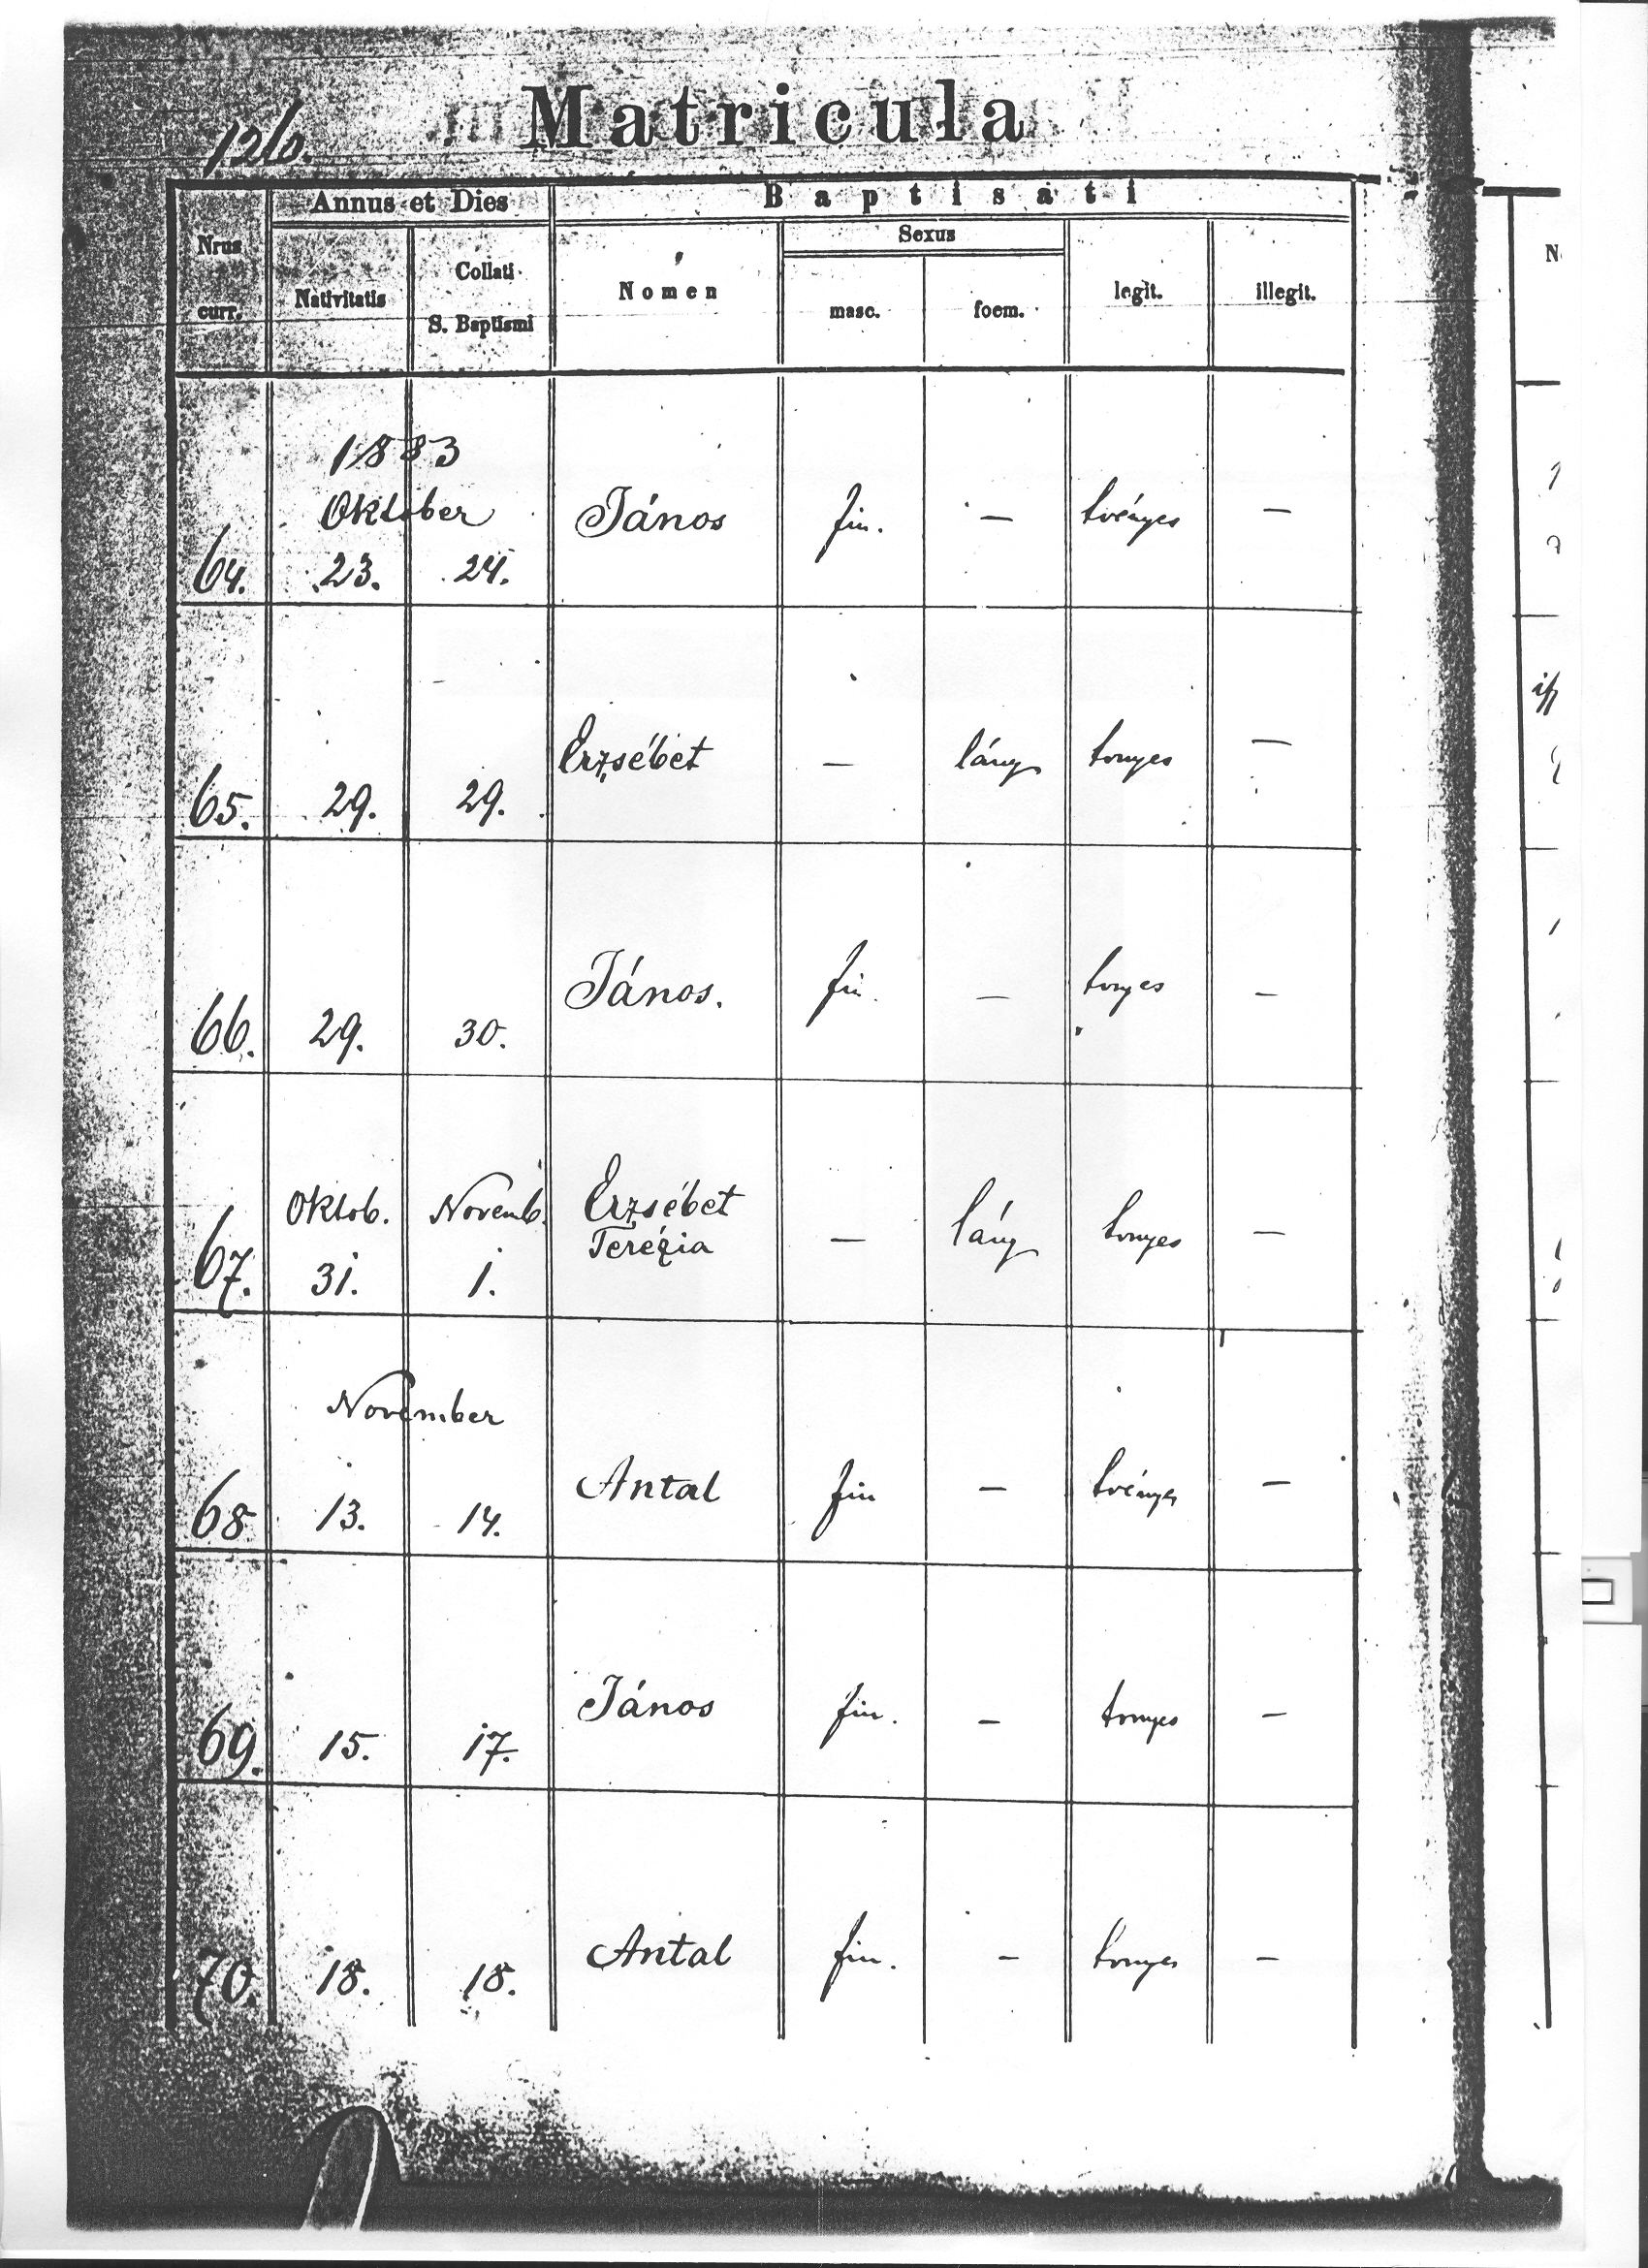 126.
Matricula
Annus et Dies
Baptisati
Nrus curr.
Nativitatis
Collati S. Baptismi
Nomen
Sexus
masc.
foem.
legit.
illegit.
1883
Oktober
64. 23. 24. János fiu. — tvényes —
65. 29. 29. Erzsébet — lány tvnyes —
66. 29. 30. János. fiu. — tvnyes —
Oktob. Novemb. Erzsébet
67. 31. 1. Terézia — lány tvnyes —
November
68 13. 14. Antal fiu — tvényes —
69. 15. 17. János fiu. — tvnyes —
70. 18. 18. Antal fiu. — tvnyes —